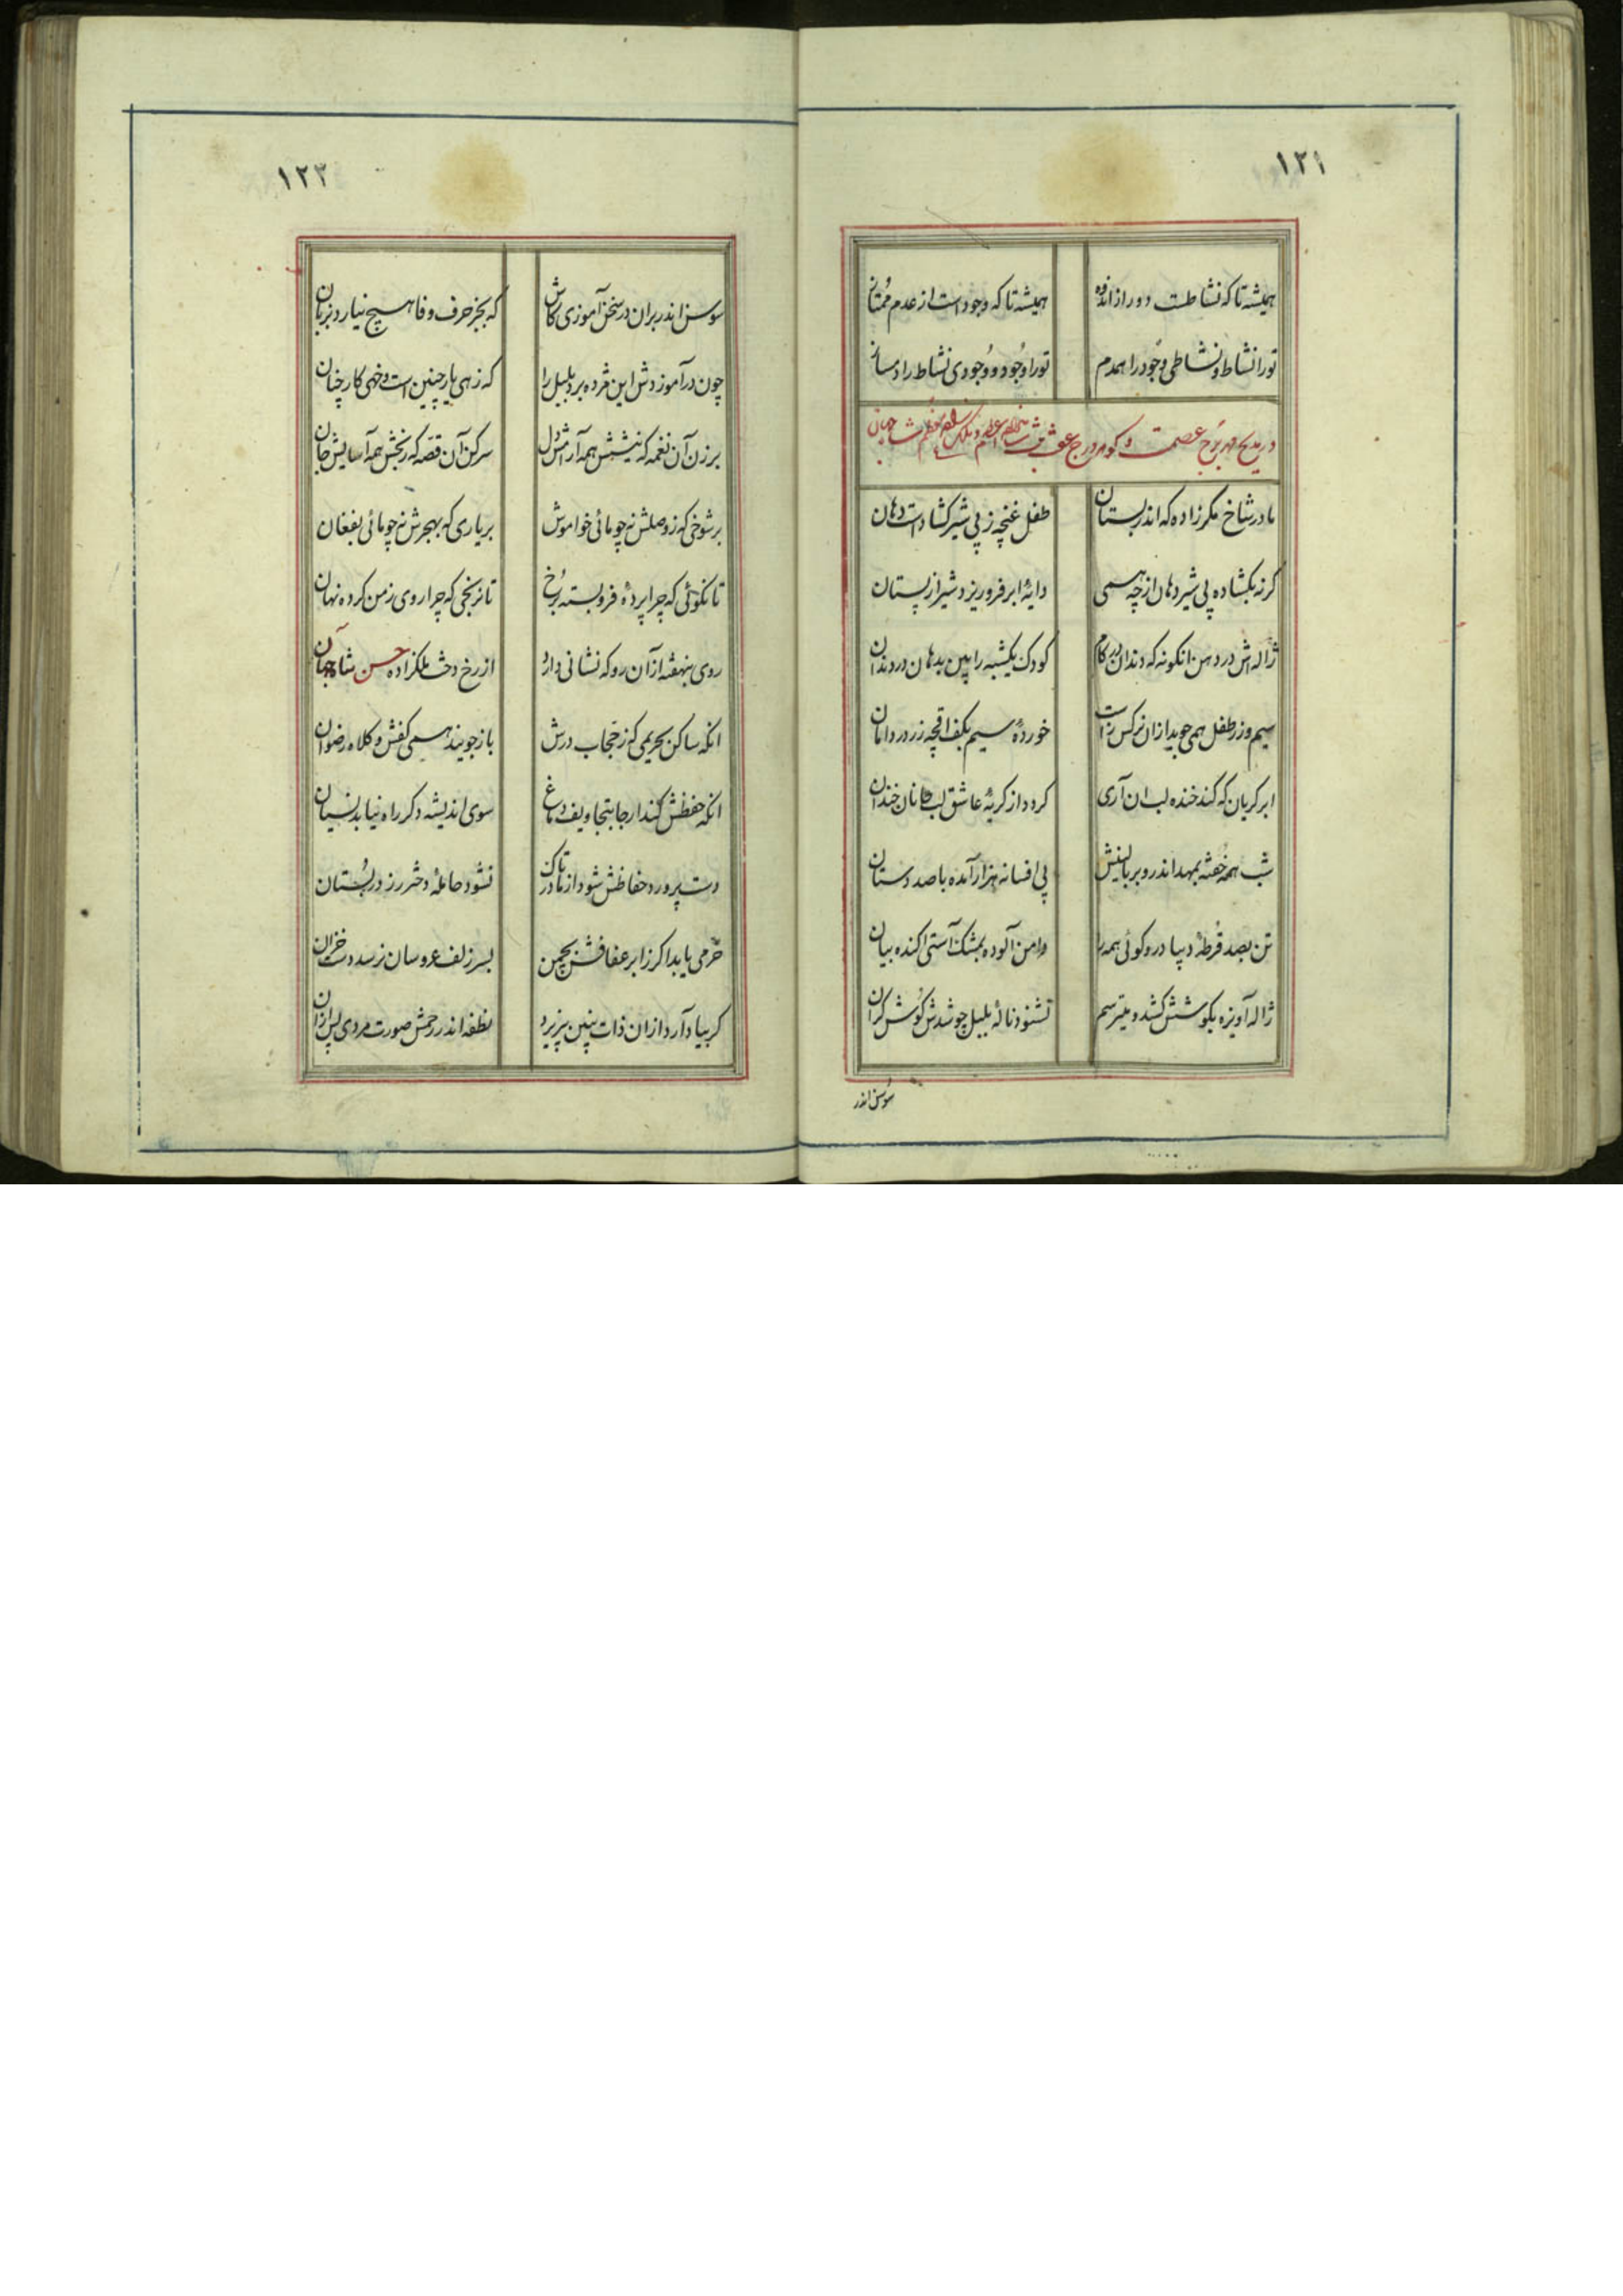 ۱۲۱
همیشه تا که نشاطست دور از اندوه همیشه تا که وجود است از عدم ممتاز
تو را نشاط و نشاطی وجود را همدم تو را وجود و وجودی نشاط را دمساز
در مدیح مهر برج عصمت و گوهر درج عفت شاه جهان
مادر شاخ مگر زاده که اندر بستان طفل غنچه ز پی شیر گشاد است دهان
گرنه بگشاده پی شیر دهان از چه همی دایهٔ ابر فرو ریزد شیر از پستان
ژاله‌اش در دهن انگونه که دندان در کام کودک یکشبه را بین بدهان در دندان
سیم و زر طفل همی جوید از ان نرگس راست خوردهٔ سیم بکف اقچهٔ زر در دامان
ابر گریان که کند خنده لب ان آری گردد از گریهٔ عاشق لب جانان خندان
شب همه خفته بمهد اندر و بر بالینش پی افسانه هزار آمده با صد دستان
تن بصد قرطهٔ دیبا در و گوئی همه را دامن آلوده بمشک آستی آکنده ببان
ژاله آویزه بگوشش کشد و میترسم نشنود نالهٔ بلبل چو شدش گوش گران
سوسن اندر
۱۲۳
سوسن اندر بر ان در سخن آموزی کاش که بجز حرف وفا هیچ نیارد بزبان
چون در آموزدش این مژده برد بلبل را که زهی یار چنین است و خهی کار چنان
بر زن آن نغمه که نیشش همه آرامش دل سر کن آن قصه که رنجش همه آسایش جان
بر شوخی که ز وصلش نه چو مائی خواموش بر یاری که بهجرش نه چو مائی بفغان
تا نگوئی که چرا پردهٔ فرو بسته برخ تا نرنجی که چرا روی ز من کرده نهان
روی بنهفته از آن رو که نشانی دارد از رخ دخت ملکزاده حسن شاه جهان
انکه ساکن بحریمی که ز حجاب درش باز جویند همی کفش و کلاه رضوان
انکه حفظش کند ار جا بتجاویف دماغ سوی اندیشه دگر راه نیابد نسیان
دست پرورد حفاظش شود از مادر تاک نشود حاملهٔ دختر رز در بستان
خرمی یابد اگر ز ابر عفافش چمن بسر زلف عروسان نرسد دست خزان
گر بیاد آرد از ان ذات نپذیرد نطفه اندر رحمش صورت مردی پس از ان